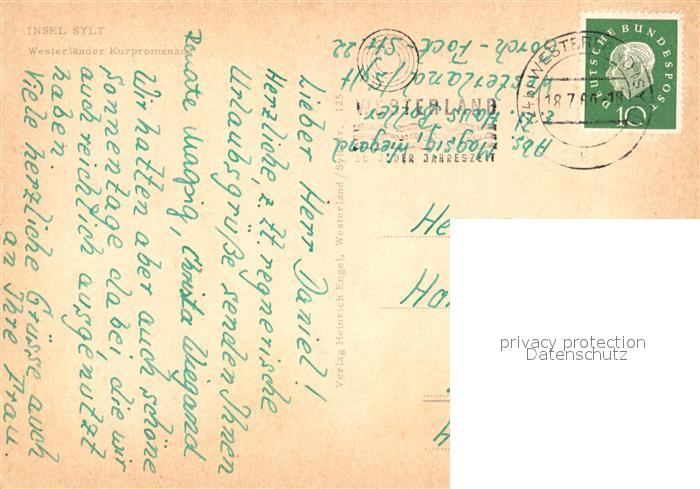 INSEL SYLT
Westerländer Kurpromenade
Lieber Herr Daniel!
Herzliche, z. Zt. regnerische
Urlaubsgrüße senden Ihnen
Renate Magsig, Christa Wiegand
Wir hatten aber auch schöne
Sonnentage dabei, die wir
auch reichlich ausgenutzt
haben.
Viele herzliche Grüsse auch
an Ihre Frau.
Verlag Heinrich Engel, Westerland/Sylt Nr. 125
Abs. Magsig, Wiegand
z. Zt. Haus
Westerland / Sylt
Gorch-Fock-Str. 22
WESTERLAND
ZU JEDER JAHRESZEIT
WESTERLAND
18.7.60-18
DEUTSCHE BUNDESPOST
10
He
Ha
privacy protection
Datenschutz